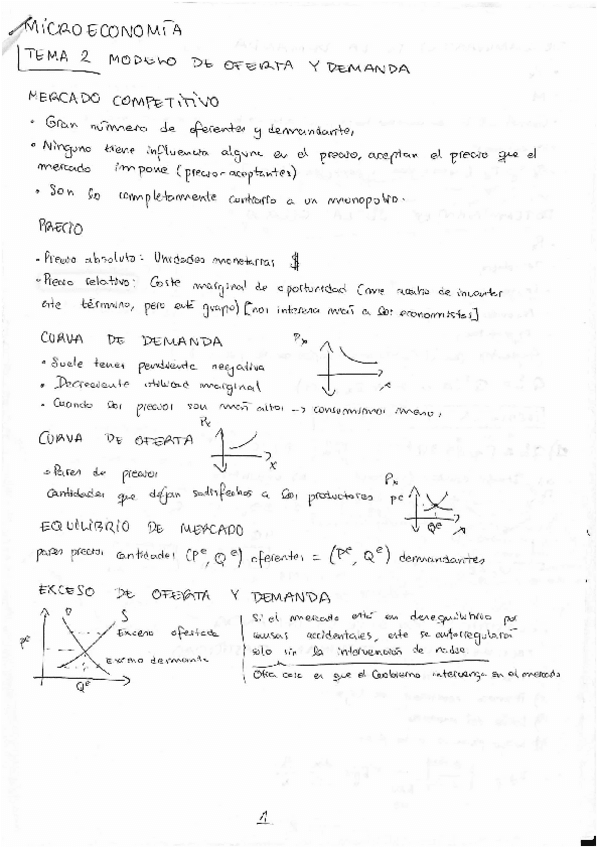 MICROECONOMÍA
TEMA 2 MODELO DE OFERTA Y DEMANDA
MERCADO COMPETITIVO
• Gran número de oferentes y demandantes
• Ninguno tiene influencia alguna en el precio, aceptan el precio que el
mercado impone (precio-aceptantes)
• Son lo completamente contrario a un monopolio.
PRECIO
- Precio absoluto: Unidades monetarias $
- Precio relativo: Coste marginal de oportunidad (me acabo de inventar
este término, pero esté guapo) [nos interesa más a los economistas]
CURVA DE DEMANDA
Px
• Suele tener pendiente negativa
• Decreciente utilidad marginal
X
• Cuando los precios son más altos --> consumimos menos
CURVA DE OFERTA
Px
X
• Pares de precios
Cantidades que dejan satisfechos a los productores
Px
pe
Qe
X
EQUILIBRIO DE MERCADO
pares precios cantidades (Pe, Qe) oferentes = (Pe, Qe) demandantes
EXCESO DE OFERTA Y DEMANDA
D S
Exceso ofertado
pe
Exceso demanda
Qe
Si el mercado está en desequilibrio por
causas accidentales, este se autorregulará
solo sin la intervención de nadie
Otra cosa es que el Gobierno intervenga en el mercado
1